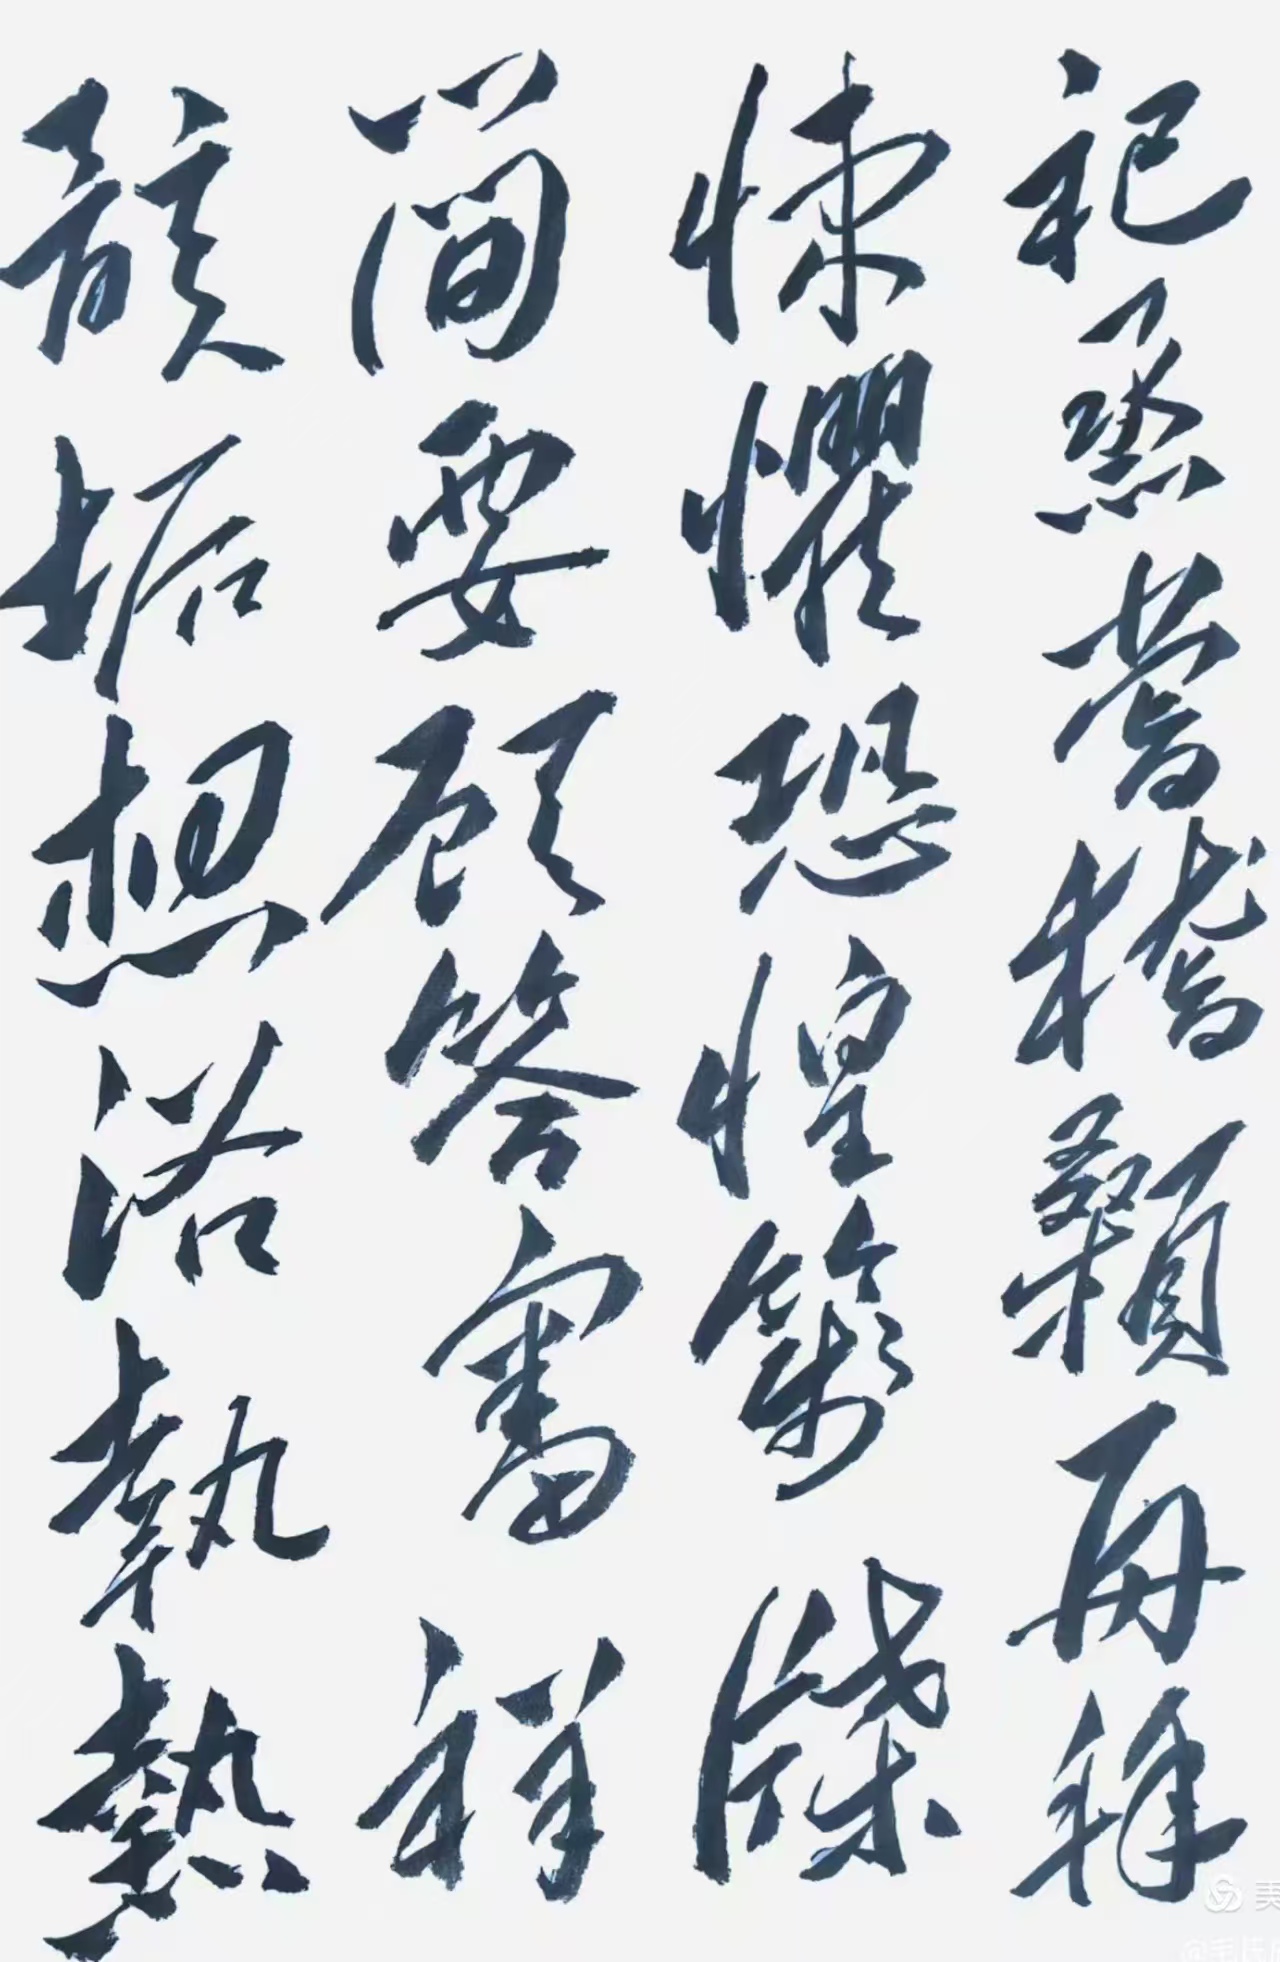 祀烝嘗稽顙再拜
悚懼恐惶箋牒
簡要顧答審祥
骸垢想浴執熱